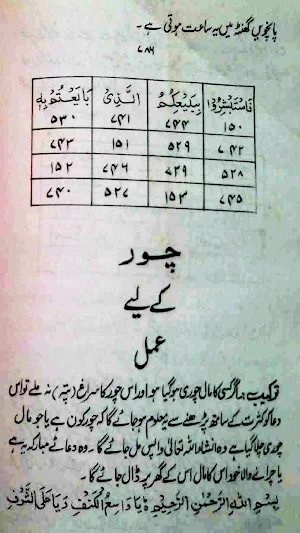 پانچویں گھنٹہ میں یہ ساعت ہوتی ہے۔
۷۸۶
فَاسْتَبْشِرُوْا بِبَيْعِكُمُ الَّذِىْ بَايَعْتُمْ بِهٖ
۱۵۰ ۷۴۴ ۷۴۱ ۵۳۰
۷۴۲ ۵۲۹ ۱۵۱ ۷۴۳
۵۲۸ ۷۳۹ ۷۴۶ ۱۵۲
۷۴۵ ۱۵۳ ۵۲۷ ۷۴۰
چور
کے لیے
عمل
ترکیب: اگر کسی کا مال چوری ہو گیا ہو اور اس چور کا سراغ (پتہ) نہ ملے تو اس
دعا کو کثرت کے ساتھ پڑھنے سے معلوم ہو جائے گا کہ چور کون ہے یا جو مال
چوری چلا گیا ہے وہ انشاء اللہ تعالیٰ واپس مل جائے گا۔ وہ دعائے مبارکہ یہ ہے
یا چرانے والا خود اس کا مال اس کے گھر پر ڈال جائے گا۔
بِسْمِ اللهِ الرَّحْمٰنِ الرَّحِيْمِ يَا وَاسِعَ الْكَنَفِ وَيَا عَلِىَّ الشَّرَفِ